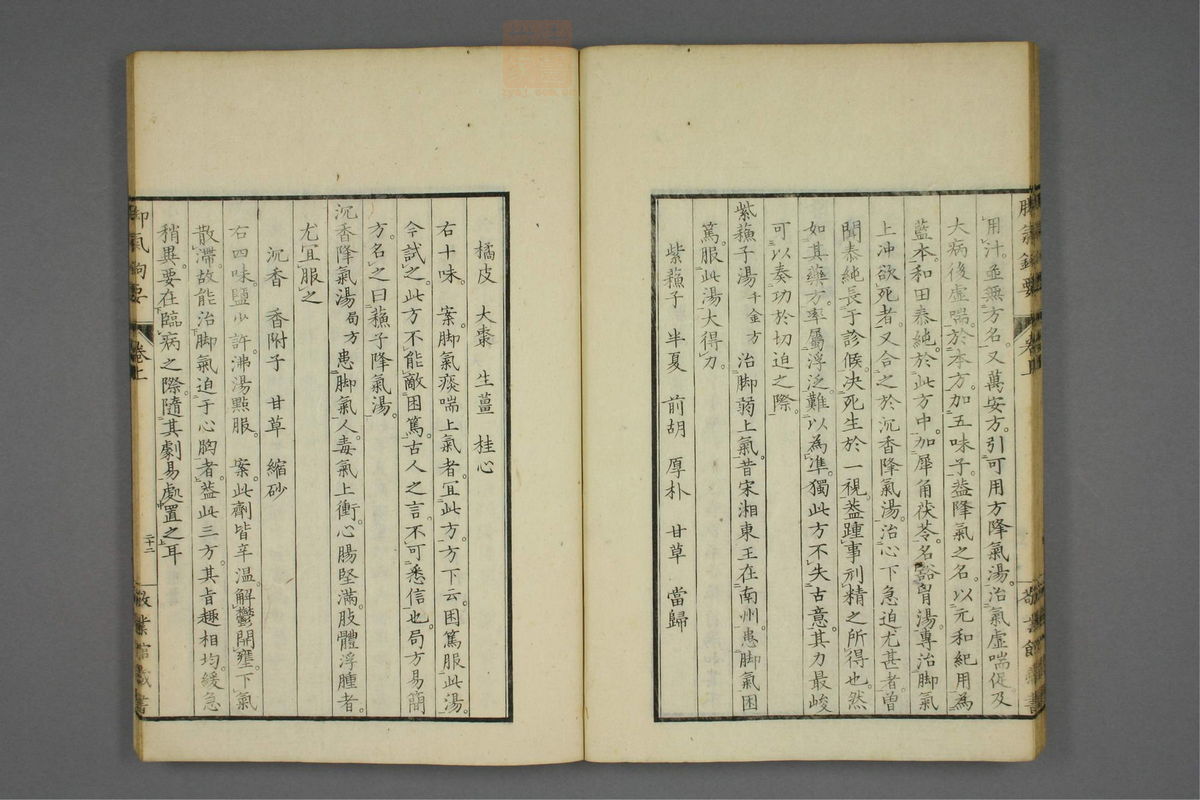 用汁。並無方名。又萬安方。引可用方降氣湯。治氣虛喘促及
大病後虛喘。於本方。加五味子。蓋降氣之名。以元和紀用為
藍本。和田泰純。於此方中。加犀角茯苓。名豁胃湯。專治脚氣
上冲欲死者。又合之於沉香降氣湯。治心下急迫尤甚者。曽
聞泰純長于診候。決死生於一視。蓋踵事刋精之所得也。然
如其藥方。率屬浮泛。難以為準。獨此方不失古意。其力最峻
可以奏功於切迫之際。
紫蘓子湯 千金方 治脚弱上氣。昔宋湘東王在南州。患脚氣困
篤。服此湯大得力。
紫蘓子 半夏 前胡 厚朴 甘草 當歸
橘皮 大棗 生薑 桂心
右十味。 案。脚氣痰喘上氣者。宜此方。方下云。困篤服此湯。
今試之。此方不能敵困篤。古人之言。不可悉信也。局方易簡
方。名之曰蘓子降氣湯。
沉香降氣湯 局方 患脚氣人。毒氣上衝。心腸堅滿。肢體浮腫者。
尤宜服之
沉香 香附子 甘草 縮砂
右四味。鹽少許。沸湯點服。 案。此劑皆辛溫。解鬱開壅。下氣
散滯。故能治脚氣迫于心胸者。蓋此三方。其旨趣相均。緩急
稍異。要在臨病之際。隨其劇易處置之耳
脚氣鉤要 卷上 二十二 敬業館藏書